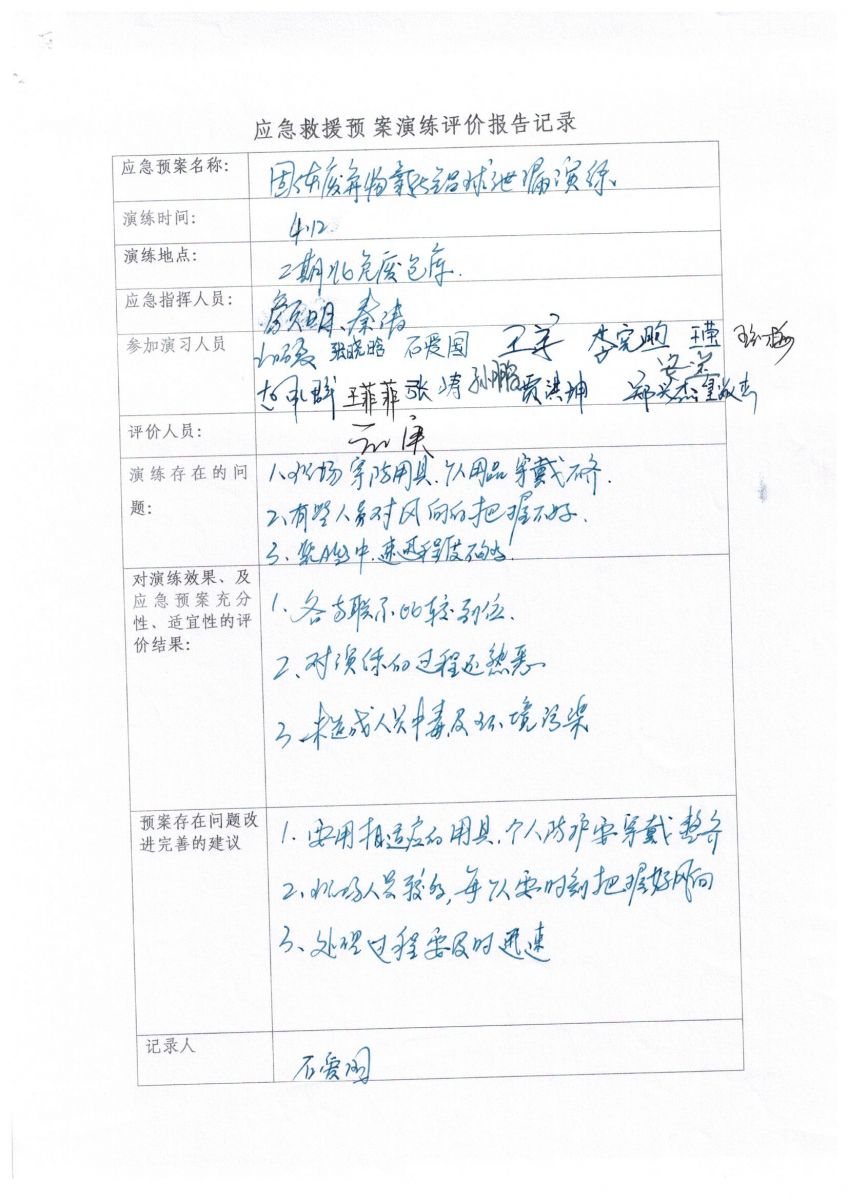 应急救援预案演练评价报告记录
应急预案名称:
固体废弃物 铝球泄漏演练.
演练时间:
4.12.
演练地点:
2期 危废仓库.
应急指挥人员:
颜明 秦涛
参加演习人员
张晓晗 石爱国 卫宇 李宪煦
王菲菲 张涛 孙鹏 贾洪坤 郑兴杰
评价人员:
演练存在的问
题:
1、现场穿防用具、个人用品穿戴不齐.
2、有些人员对风向的把握不好.
3、 中、速迅程度不够.
对演练效果、及
应急预案充分
性、适宜性的评
价结果:
1、各方联系比较到位.
2、对演练的过程还熟悉.
3、未造成人员中毒及环境污染
预案存在问题改
进完善的建议
1、要用相适应的用具、个人防护要穿戴整齐
2、现场人员较多, 要时刻把握好风向
3、处理过程要及时迅速
记录人
石爱国